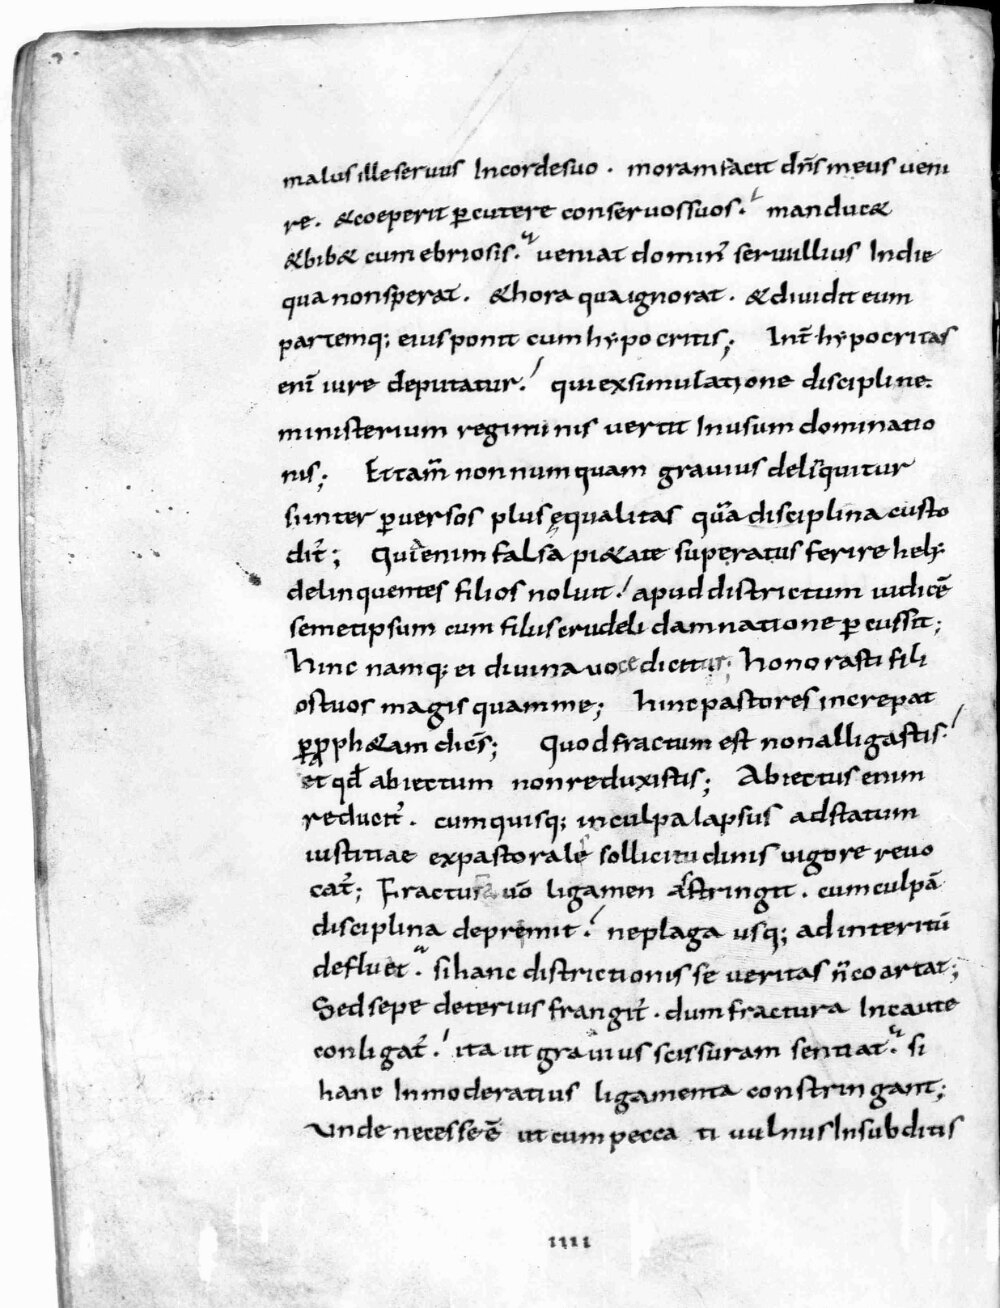 malus ille servus In corde suo . moram facit dn̄s meus veni
re . &coeperit p̱cutere conservos suos . manduc&
&bib& cum ebriosis . veniat domin̄ servi illius In die
qua non sperat . &hora qua ignorat . &dividit eum
partemq; eius ponit cum hypocritis ; Int̄ hypocritas
eni̅ iure deputatur . qui ex simulatione discipline .
ministerium regiminis vertit In usum dominatio
nis ; Et tam̄ non numquam gravius delinquitur
si inter p̱versos plus ęqualitas qua̅ disciplina custo
dit̄ ; Quia enim falsa pi&ate superatus ferire hely
delinquentes filios noluit . apud districtum iudice̅
semetipsum cum filiis crudeli damnatione p̱cussit ;
hinc namq; ei divina voce dicitur ; honorasti fili
os tuos magis quam me ; hinc pastores increpat
p̱ p̱ph&am dice̅s ; Quod fractum est non alligastis .
et qd̄ abiectum non reduxistis ; Abiectus enim
reducit̄ . cum quisq; in culpa lapsus ad statum
iustitiae ex pastorale sollicitudinis vigore revo
cat̄ ; Fractura vō ligamen astringit . cum culpā
disciplina depremit . ne plaga usq; ad interitū
defluet . si hanc districtionis se veritas n̄ coartat ;
Sed sepe deterius frangit̄ . dum fractura Incaute
conligat̄ . ita ut gravius scissuram sentiat . si
hanc Inmoderatius ligamenta constringant ;
unde necesse ē ut cum pecca ti vulnus In subditis
IIII